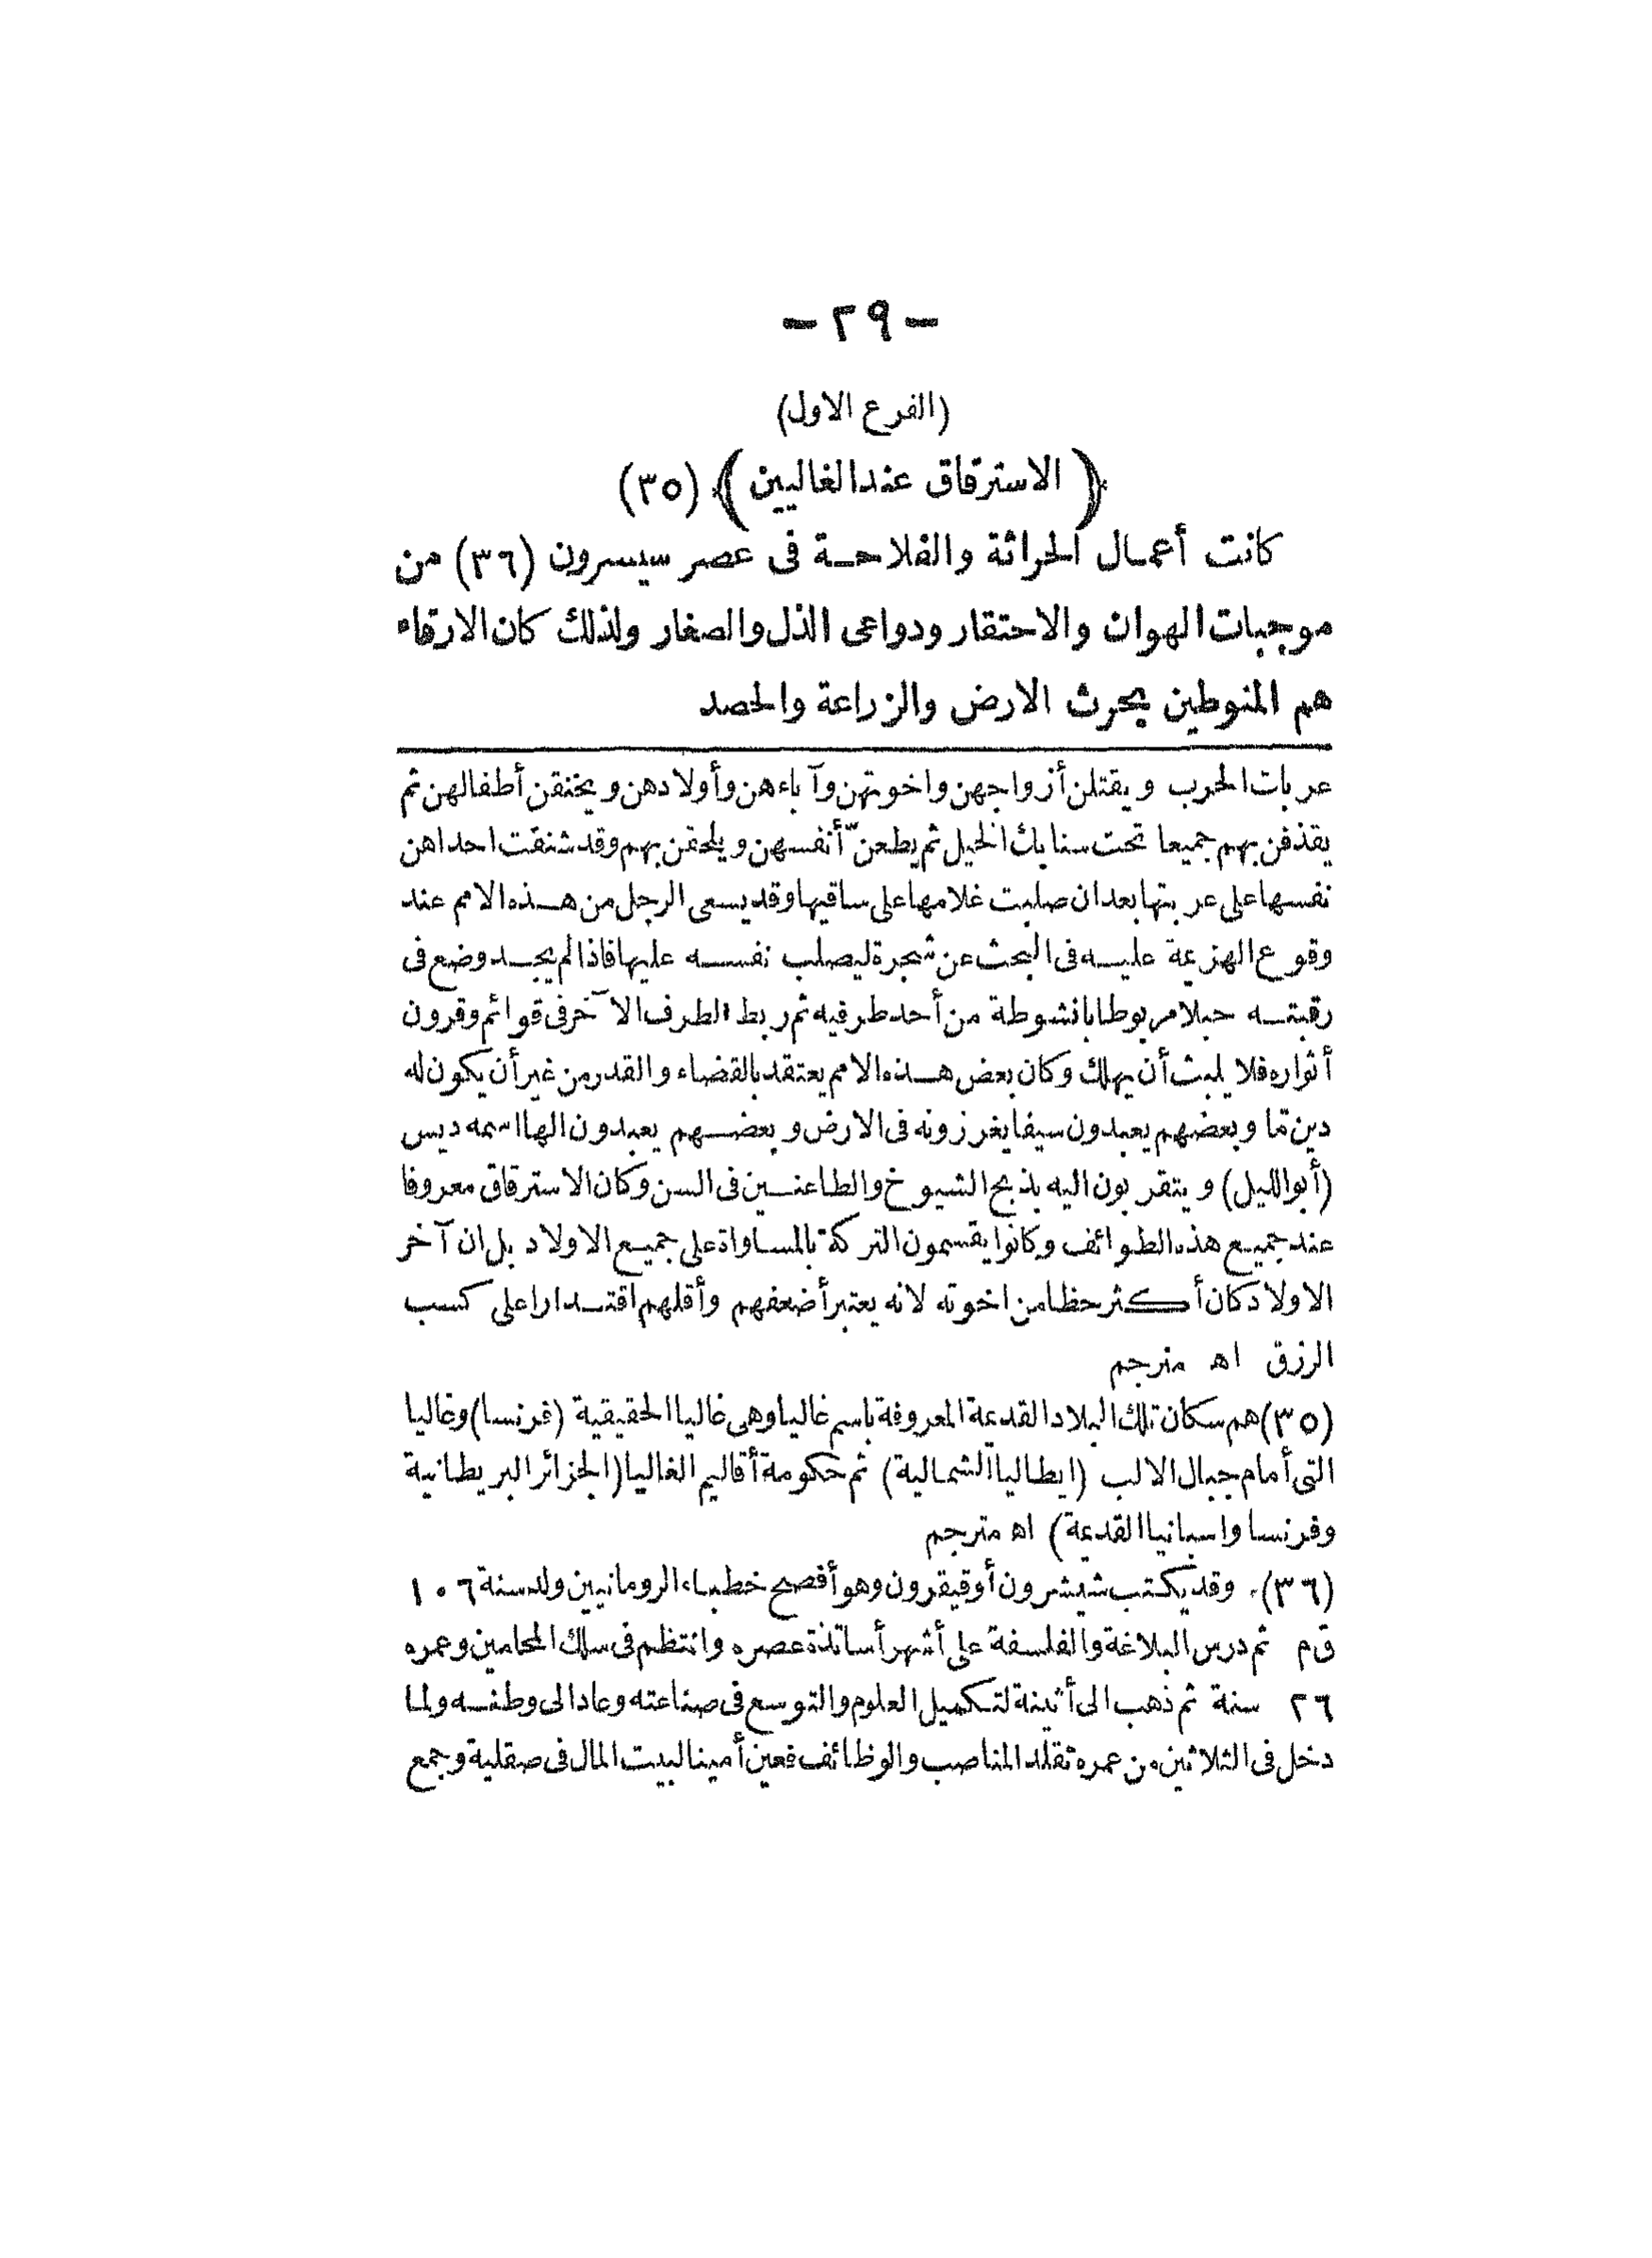 - ٢٩ -
(الفرع الاول)
﴿ الاسترقاق عند الغاليين ﴾ (٣٥)
كانت أعمال الحراثة والفلاحة فى عصر سيسرون (٣٦) من
موجبات الهوان والاحتقار ودواعى الذل والصغار ولذلك كان الارقاء
هم المنوطين بحرث الارض والزراعة والحصد
عربات الحرب ويقتلن أزواجهن واخوتهن وآباءهن وأولادهن ويخنقن أطفالهن ثم
يقذفن بهم جميعا تحت سنابك الخيل ثم يطعنّ أنفسهن ويلحقن بهم وقد شنقت احداهن
نفسها على عربتها بعد ان صلبت غلامها على ساقيها وقد يسعى الرجل من هذه الامم عند
وقوع الهزيمة عليه فى البحث عن شجرة ليصلب نفسه عليها فاذا لم يجد وضع فى
رقبته حبلا مربوطا بانشوطة من أحد طرفيه ثم ربط الطرف الآخر فى قوائم وقرون
أثواره فلا يلبث أن يهلك وكان بعض هذه الامم يعتقد بالقضاء والقدر من غير أن يكون له
دين مّا وبعضهم يعبدون سيفا يغرزونه فى الارض وبعضهم يعبدون الها اسمه ديس
(أبو الليل) ويتقربون اليه بذبح الشيوخ والطاعنين فى السن وكان الاسترقاق معروفا
عند جميع هذه الطوائف وكانوا يقسمون التركة بالمساواة على جميع الاولاد بل ان آخر
الاولاد كان أكثر حظا من اخوته لانه يعتبر أضعفهم وأقلهم اقتدارا على كسب
الرزق اه مترجم
(٣٥) هم سكان تلك البلاد القديمة المعروفة باسم غاليا وهى غاليا الحقيقية (فرنسا) وغاليا
التى أمام جبال الالب (ايطاليا الشمالية) ثم حكومة أقاليم الغاليا (الجزائر البريطانية
وفرنسا واسبانيا القديمة) اه مترجم
(٣٦) وقد يكتب شيشرون أو قيقرون وهو أفصح خطباء الرومانيين ولد سنة ١٠٦
ق م ثم درس البلاغة والفلسفة على أشهر أساتذة عصره وانتظم فى سلك المحامين وعمره
٢٦ سنة ثم ذهب الى أثينة لتكميل العلوم والتوسع فى صناعته وعاد الى وطنه ولما
دخل فى الثلاثين من عمره تقلد المناصب والوظائف فعين أمينا لبيت المال فى صقلية وجمع